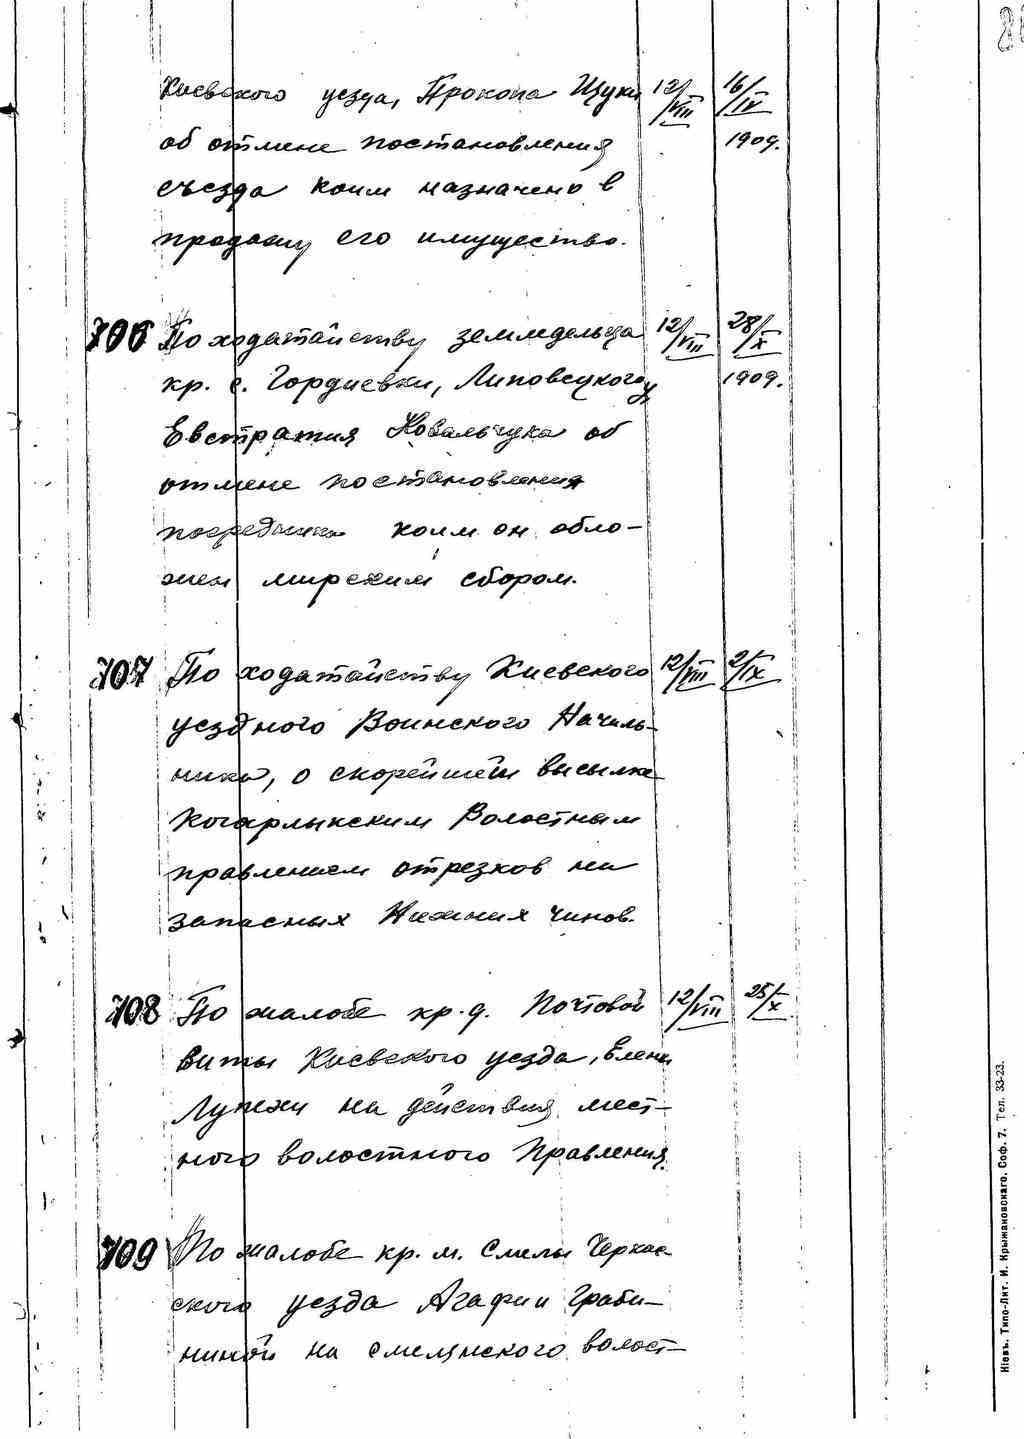 Киевского уезда, Прокопа Щуки 12/VIII 16/IV
об отмене постановления 1909.
съезда коим назначено в
продажу его имущество.
706 По ходатайству земледельца 12/VIII 28/X
кр. с. Гордиевки, Липовецкого у 1909.
Евстратия Ковальчука об
отмене постановления
посредника коим он обло-
жен мирским сбором.
707 По ходатайству Киевского 12/VIII 2/IX
уездного Воинского Началь-
ника, о скорейшей высылке
Кагарлыкским Волостным
правлением отрезков на
запасных Нижних чинов.
708 По жалобе кр. д. Почтовой 12/VIII 25/X
Виты Киевского уезда, Елены
на действия мест-
ного волостного Правления.
709 По жалобе кр. м. Смелы Черкас-
ского уезда Агафии Граби-
ниной на смелянского волост-
Кіевъ. Типо-Лит. И. Крыжановскаго. Соф. 7. Тел. 33-23.